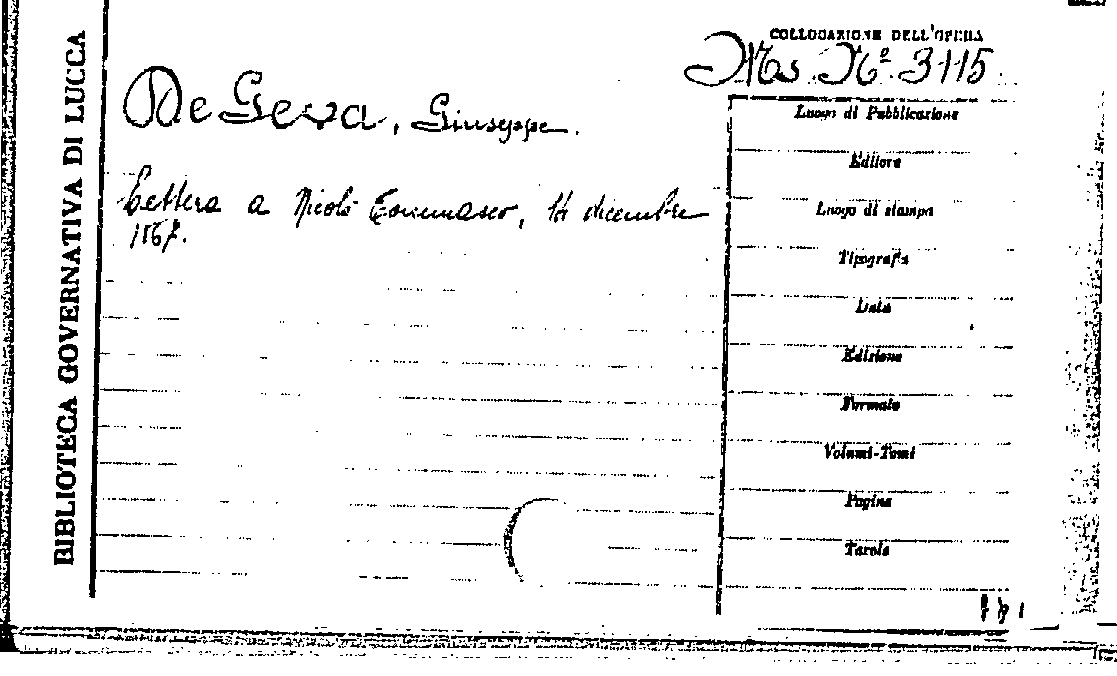 BIBLIOTECA GOVERNATIVA DI LUCCA
COLLOCAZIONE DELL'OPERA
Ms. Nº 3115
De Geva, Giuseppe.
Lettera a Nicolò Tommaseo, 14 dicembre
1867.
Luogo di Pubblicazione
Editore
Luogo di stampa
Tipografia
Data
Edizione
Formato
Volumi-Tomi
Pagine
Tavole